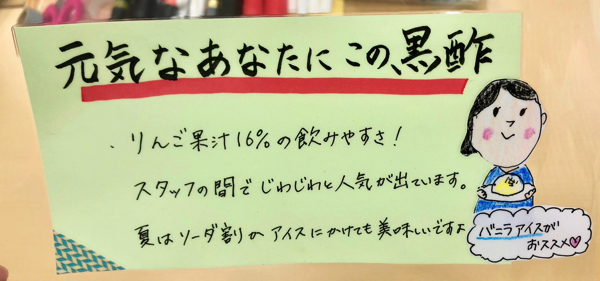 元気なあなたにこの、黒酢
・りんご果汁16%の飲みやすさ!
スタッフの間でじわじわと人気が出ています。
夏はソーダ割りかアイスにかけても美味しいですよ
バニラアイスが
おススメ♡